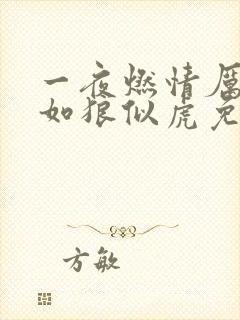 一夜燃情厉
如狼似虎免
方敏